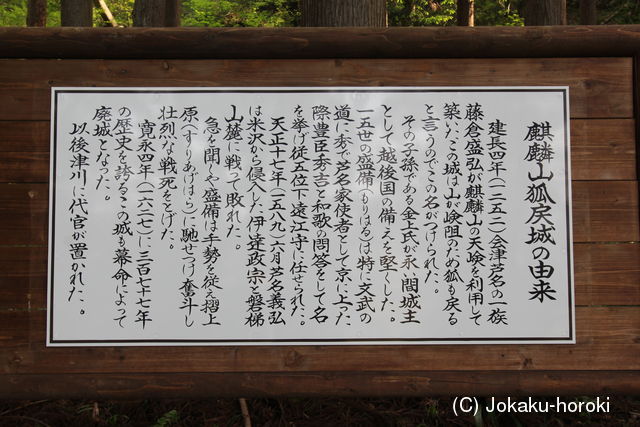 麒麟山狐戻城の由来
建長四年(一二五二)会津芦名の一族
藤倉盛弘が麒麟山の天嶮を利用して
築いたこの城は山が嶮阻のため狐も戻る
と言うのでこの名がつけられた。
その子孫である金上氏が永い間城主
として越後国の備えを堅くした。
一五世の盛備(もりはる)は特に文武の
道に秀で芦名家使者として京に上った
際豊臣秀吉と和歌の問答をして名
を挙げ従五位下遠江守に任ぜられた。
天正十七年(一五八九)六月芦名義弘
は米沢から侵入した伊達政宗と磐梯
山麓に戦って敗れた。
急を聞いた盛備は手勢を従え摺上
原(すりあげはら)に馳せつけ奮斗し
壮烈な戦死をとげた。
寛永四年(一六二七)に三百七十七年
の歴史を誇るこの城も幕命によって
廃城となった。
以後津川に代官が置かれた。
(C) Jokaku-horoki